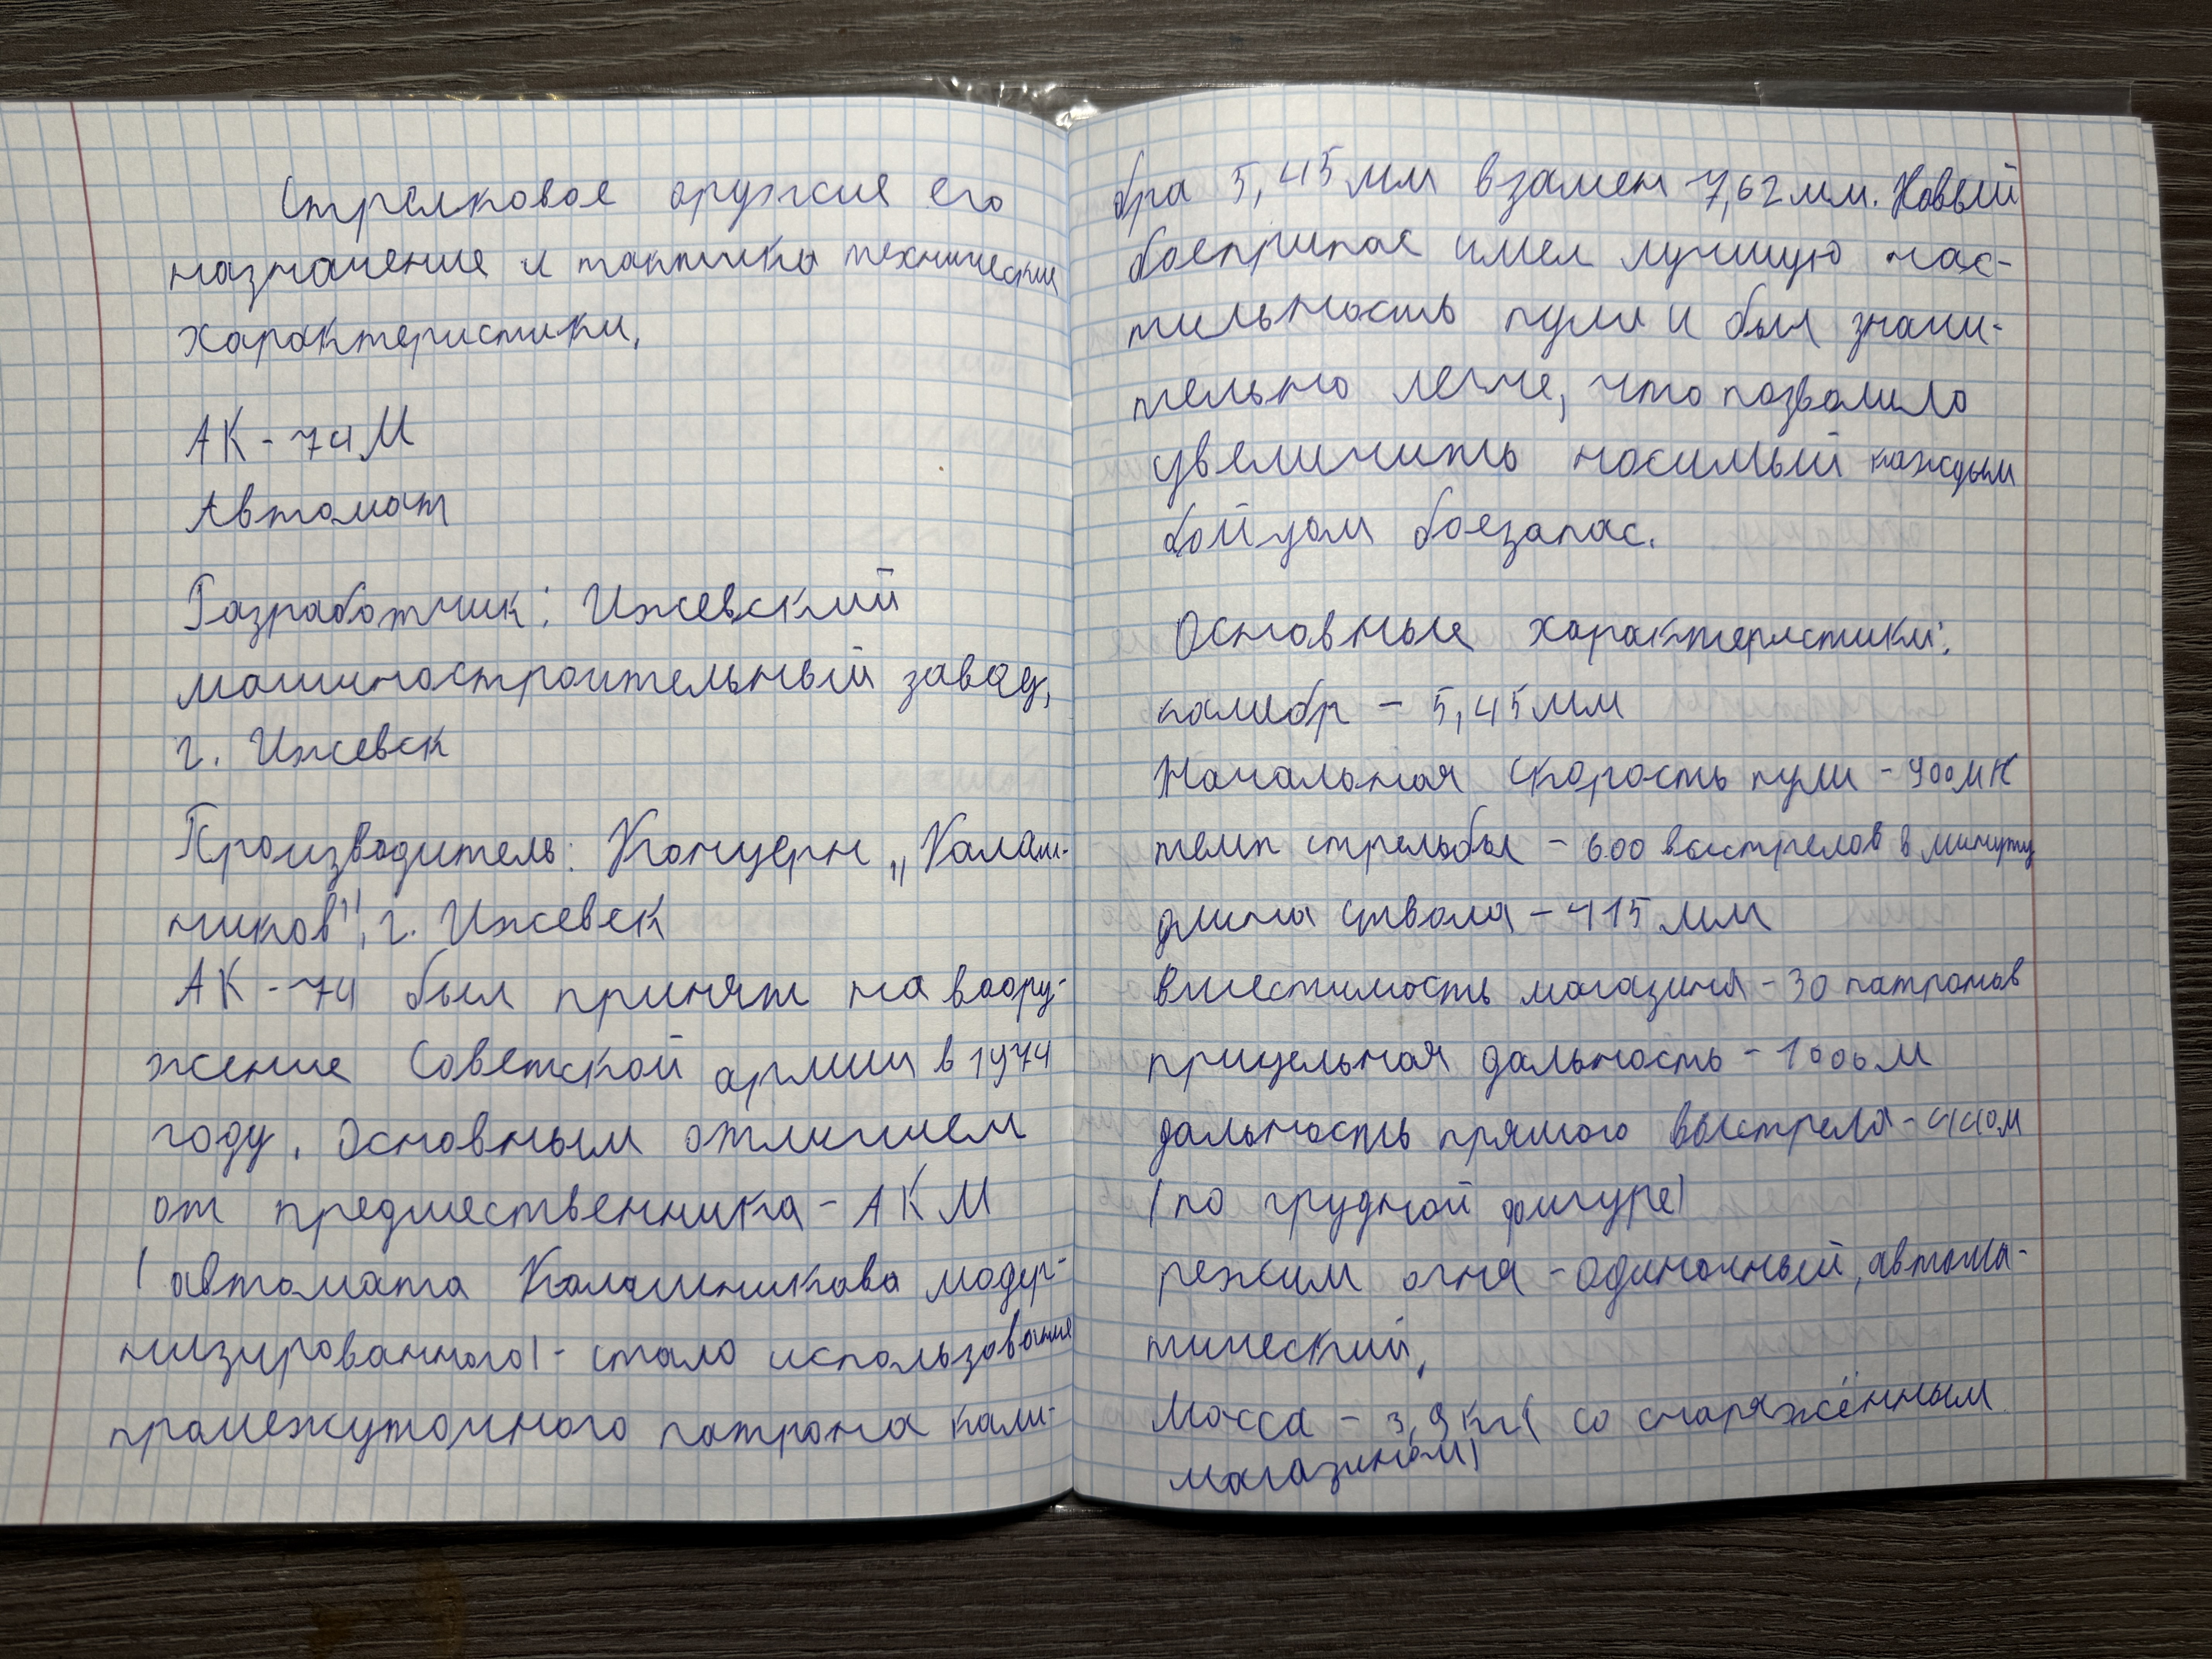 Стрелковое оружие его
назначение и тактико технические
характеристики.
АК-74М
Автомат
Разработчик: Ижевский
машиностроительный завод,
г. Ижевск
Производитель: Концерн „Калаш-
ников", г. Ижевск
АК-74 был принят на воору-
жение Советской армии в 1974
году. Основным отличием
от предшественника - АКМ
(автомата Калашникова модер-
низированного) - стало использование
промежуточного патрона кали-
бра 5,45 мм взамен 7,62 мм. Новый
боеприпас имел лучшую нас-
тильность пули и был значи-
тельно легче, что позволило
увеличить носимый каждым
бойцом боезапас.
Основные характеристики:
калибр - 5,45 мм
Начальная скорость пули - 900
темп стрельбы - 600 выстрелов в минуту
длина ствола - 415 мм
Вместимость магазина - 30 патронов
прицельная дальность - 1000 м
дальность прямого выстрела - 440 м
(по грудной фигуре)
режим огня - одиночный, автома-
тический,
Масса - 3,9 кг (со снаряжённым
магазином)